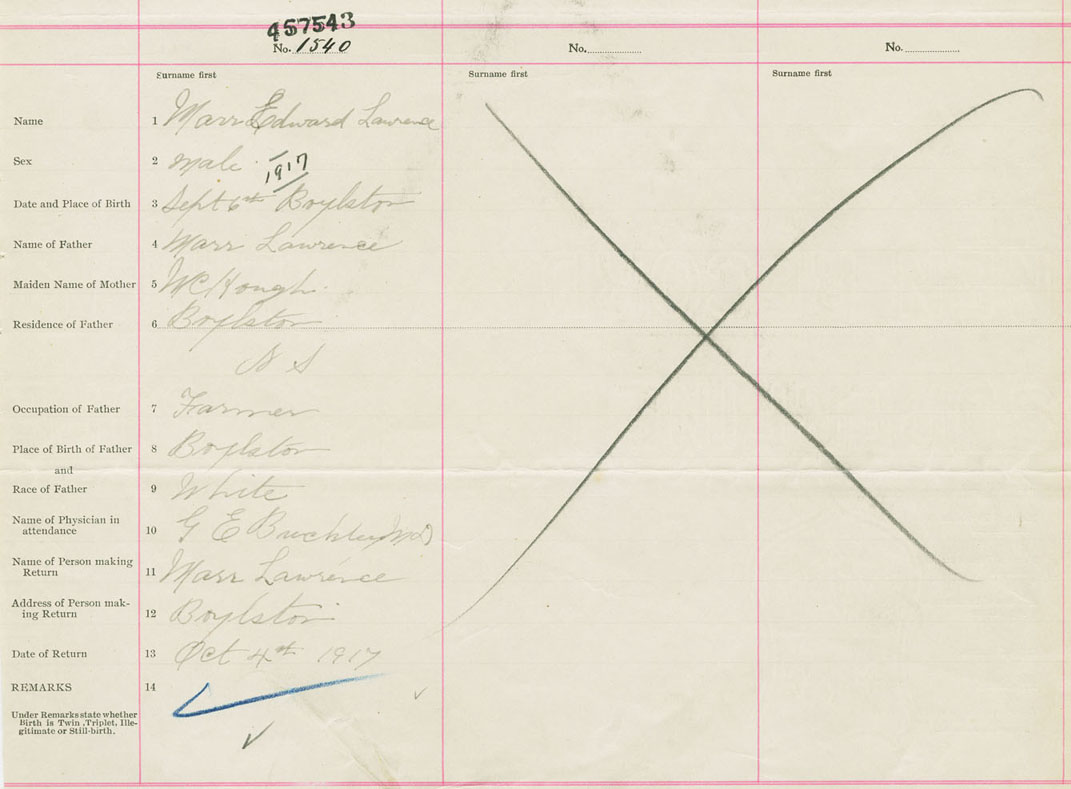 457543
No. 1540
No.
No.
Surname first
Surname first
Surname first
Name 1 Marr Edward Lawrence
Sex 2 Male
1917
Date and Place of Birth 3 Sept 6th Boylston
Name of Father 4 Marr Lawrence
Maiden Name of Mother 5 McKough
Residence of Father 6 Boylston
N S
Occupation of Father 7 Farmer
Place of Birth of Father 8 Boylston
and
Race of Father 9 White
Name of Physician in
attendance 10 G E Buckley MD
Name of Person making
Return 11 Marr Lawrence
Address of Person mak-
ing Return 12 Boylston
Date of Return 13 Oct 4th 1917
REMARKS 14
Under Remarks state whether
Birth is Twin, Triplet, Ille-
gitimate or Still-birth.